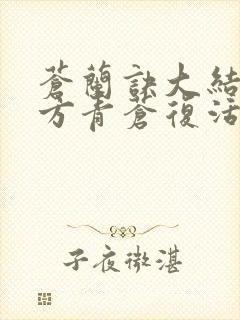 蒼蘭訣大結
方青蒼復活
子夜微湛